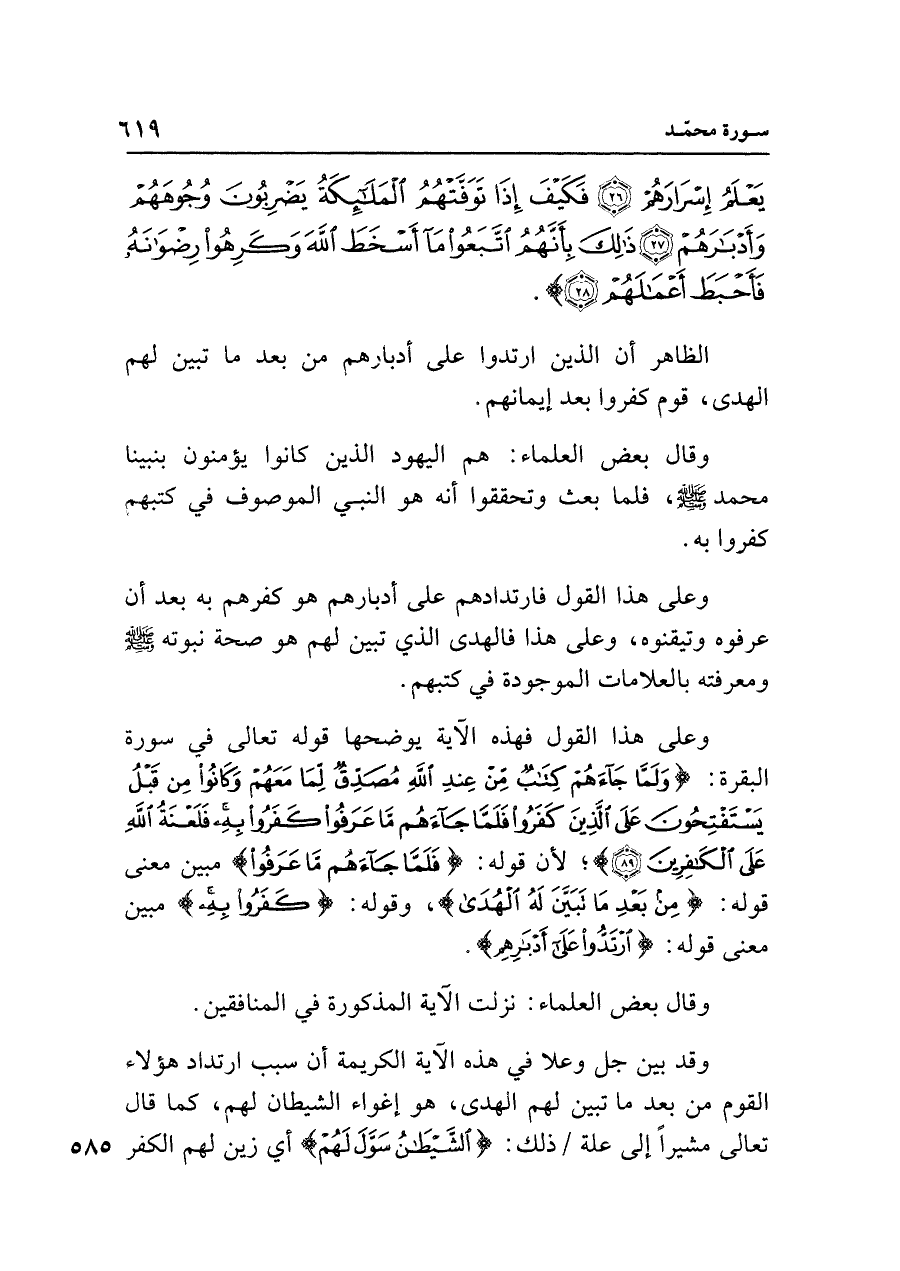 سورة محمّد ٦١٩
يَعْلَمُ إِسْرَارَهُمْ ﴿٢٦﴾ فَكَيْفَ إِذَا تَوَفَّتْهُمُ ٱلْمَلَٰٓئِكَةُ يَضْرِبُونَ وُجُوهَهُمْ
وَأَدْبَٰرَهُمْ ﴿٢٧﴾ ذَٰلِكَ بِأَنَّهُمُ ٱتَّبَعُوا۟ مَآ أَسْخَطَ ٱللَّهَ وَكَرِهُوا۟ رِضْوَٰنَهُۥ
فَأَحْبَطَ أَعْمَٰلَهُمْ ﴿٢٨﴾﴾ .
الظاهر أن الذين ارتدوا على أدبارهم من بعد ما تبين لهم
الهدى، قوم كفروا بعد إيمانهم.
وقال بعض العلماء: هم اليهود الذين كانوا يؤمنون بنبينا
محمد ﷺ، فلما بعث وتحققوا أنه هو النبي الموصوف في كتبهم
كفروا به.
وعلى هذا القول فارتدادهم على أدبارهم هو كفرهم به بعد أن
عرفوه وتيقنوه، وعلى هذا فالهدى الذي تبين لهم هو صحة نبوته ﷺ
ومعرفته بالعلامات الموجودة في كتبهم.
وعلى هذا القول فهذه الآية يوضحها قوله تعالى في سورة
البقرة: ﴿وَلَمَّا جَآءَهُمْ كِتَٰبٌ مِّنْ عِندِ ٱللَّهِ مُصَدِّقٌ لِّمَا مَعَهُمْ وَكَانُوا۟ مِن قَبْلُ
يَسْتَفْتِحُونَ عَلَى ٱلَّذِينَ كَفَرُوا۟ فَلَمَّا جَآءَهُم مَّا عَرَفُوا۟ كَفَرُوا۟ بِهِۦ فَلَعْنَةُ ٱللَّهِ
عَلَى ٱلْكَٰفِرِينَ ﴿٨٩﴾﴾؛ لأن قوله: ﴿فَلَمَّا جَآءَهُم مَّا عَرَفُوا۟﴾ مبين معنى
قوله: ﴿مِنۢ بَعْدِ مَا تَبَيَّنَ لَهُ ٱلْهُدَىٰ﴾، وقوله: ﴿كَفَرُوا۟ بِهِۦ﴾ مبين
معنى قوله: ﴿ٱرْتَدُّوا۟ عَلَىٰٓ أَدْبَٰرِهِم﴾.
وقال بعض العلماء: نزلت الآية المذكورة في المنافقين.
وقد بين جل وعلا في هذه الآية الكريمة أن سبب ارتداد هؤلاء
القوم من بعد ما تبين لهم الهدى، هو إغواء الشيطان لهم، كما قال
تعالى مشيراً إلى علة / ذلك: ﴿ٱلشَّيْطَٰنُ سَوَّلَ لَهُمْ﴾ أي زين لهم الكفر ٥٨٥